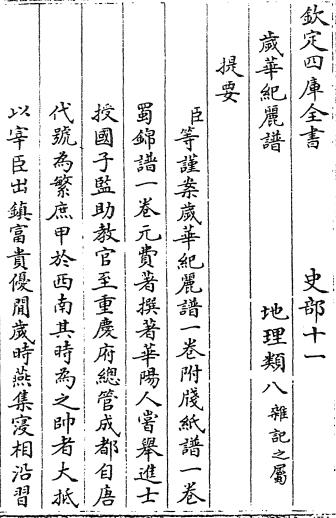 欽定四庫全書　史部十一
歲華紀麗譜　地理類八雜記之屬
提要
臣等謹案歲華紀麗譜一卷附牋紙譜一卷
蜀錦譜一卷元費著撰著華陽人嘗舉進士
授國子監助教官至重慶府總管成都自唐
代號為繁庶甲於西南其時為之帥者大抵
以宰臣出鎮富貴優閒歲時燕集寖相沿習